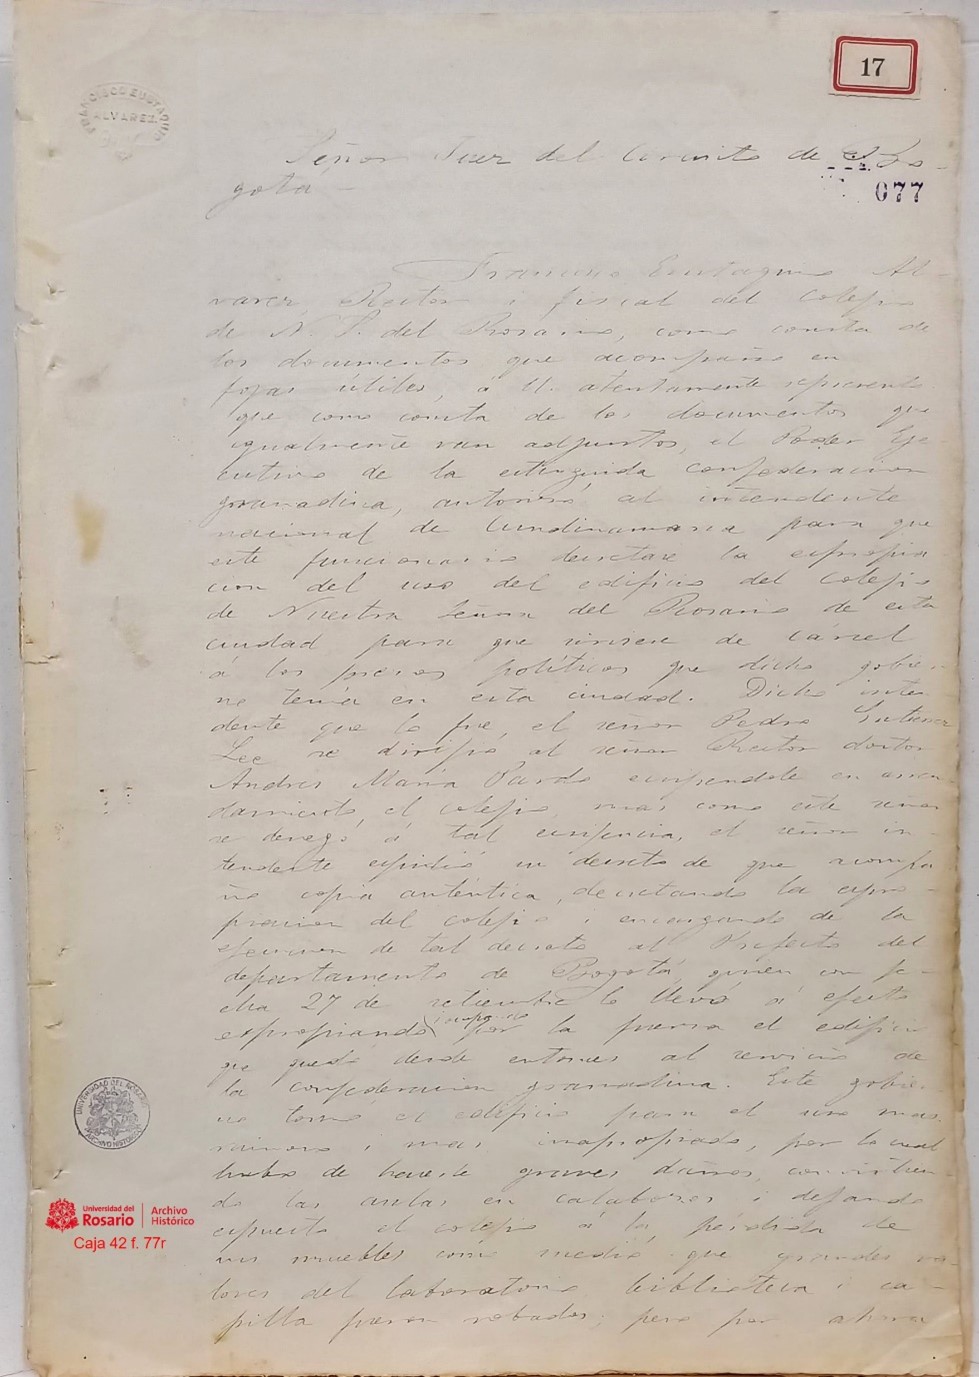 17
FRANCISCO EUSTAQUIO
ALVAREZ.
Señor Juez del Circuito de Bo-
gotá—
077
Francisco Eustaquio Al-
varez, Rector i fiscal del Colegio
de N. S. del Rosario, como consta de
los documentos que acompaño en
fojas útiles, á U. atentamente represento
que como consta de los documentos que
igualmente van adjuntos, el Poder Eje-
cutivo de la estinguida confederacion
granadina, autorizó al intendente
nacional de Cundinamarca para que
este funcionario decretase la espropia-
cion del uso del edificio del Colegio
de Nuestra Señora del Rosario de esta
ciudad para que sirviese de cárcel
á los presos políticos que dicho gobier-
no tenía en esta ciudad. Dicho inten-
dente que lo fué, el señor Pedro Gutierrez
Lee se dirijió al señor Rector doctor
Andres María Pardo en arren-
damiento, el colejio, mas como este señor
se denegó á tal exijencia, el señor in-
tendente espidió un decreto de que acompa-
ño copia auténtica, decretando la espro-
piacion del colejio i encargando de la
ejecucion de tal decreto al Prefecto del
departamento de Bogotá, quien con fe-
cha 27 de setiembre lo llevó á efecto
expropiando por la fuerza el edificio
que quedó desde entonces al servicio de
la confederacion granadina. Este gobier-
no tomó el edificio para el uso mas
ruinoso i mas inapropiado, por lo cual
hubo de hacerle graves daños, convirtien-
do las aulas en calabozos i dejando
espuesto el colejio á la pérdida de
sus muebles como medio que grandes va-
lores del laboratorio biblioteca i ca-
pilla fueron robados; pero por ahora
UNIVERSIDAD DEL ROSARIO
ARCHIVO HISTORICO
Universidad del
Rosario
Archivo
Histórico
Caja 42 f. 77r